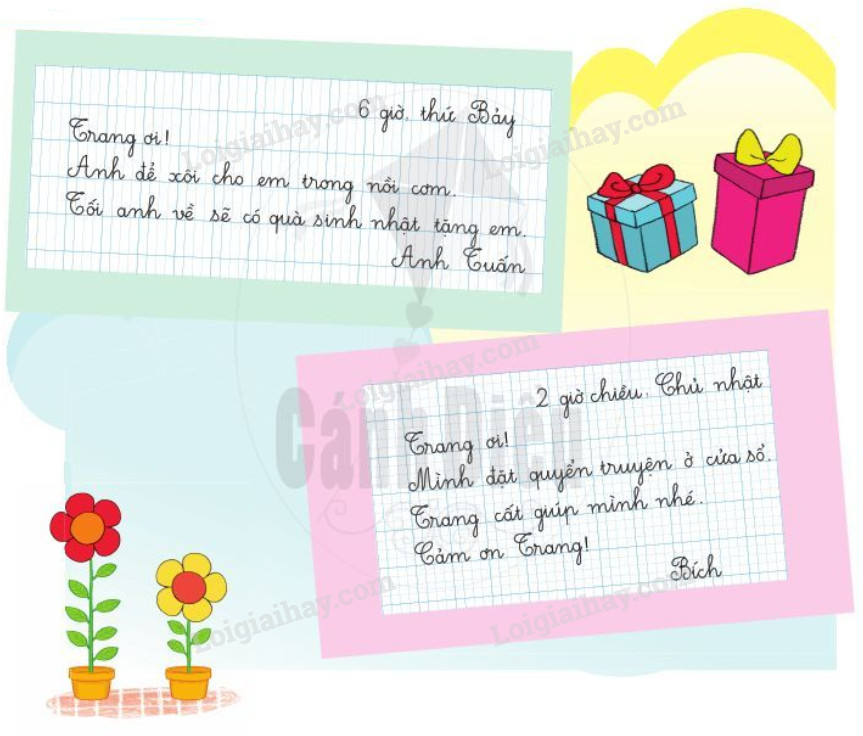 6 giờ, thứ Bảy
Trang ơi!
Anh để xôi cho em trong nồi cơm.
Tối anh về sẽ có quà sinh nhật tặng em.
Anh Tuấn
2 giờ chiều, Chủ nhật
Trang ơi!
Mình đặt quyển truyện ở cửa sổ.
Trang cất giúp mình nhé.
Cảm ơn Trang!
Bích
Cánh Diều
Loigiaihay.com
Loigiaihay.com
Loigiaihay.com
Loigiaihay.com
Loigiaihay.com